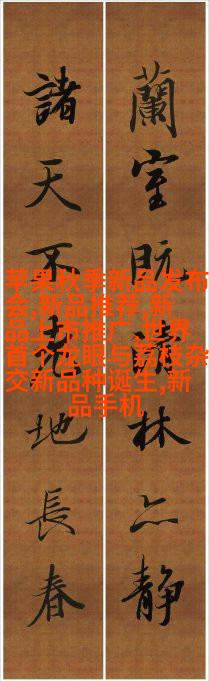 蘭室既林亦静
諸天不老地長春
苹果秋季新品发布
会,新品推荐,新
品上市推广,世界
首个龙眼与荔枝杂
交新品种诞生,新
品手机